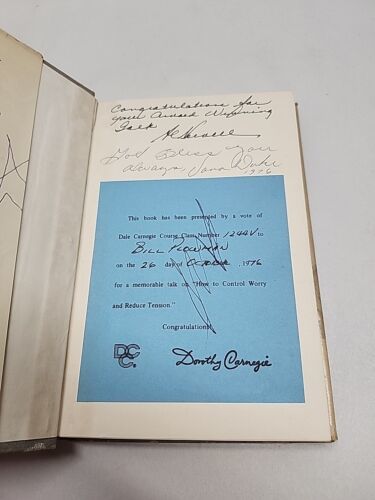 Congratulations for
your award Winning
Talk
God Bless you
always,
1976
This book has been presented by a vote of
Dale Carnegie Course Class Number 1244V to
BILL PLOWMAN
on the 26 day of October, 1976
for a memorable talk on "How to Control Worry
and Reduce Tension."
Congratulations!
DCC®
Dorothy Carnegie